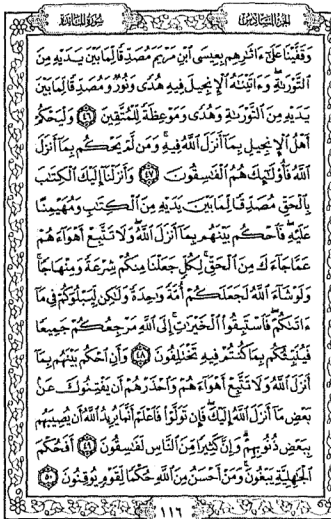 الجزء السادس سورة المائدة
وَقَفَّيْنَا عَلَىٰٓ ءَاثَٰرِهِم بِعِيسَى ٱبْنِ مَرْيَمَ مُصَدِّقًا لِّمَا بَيْنَ يَدَيْهِ مِنَ
ٱلتَّوْرَىٰةِ وَءَاتَيْنَٰهُ ٱلْإِنجِيلَ فِيهِ هُدًى وَنُورٌ وَمُصَدِّقًا لِّمَا بَيْنَ
يَدَيْهِ مِنَ ٱلتَّوْرَىٰةِ وَهُدًى وَمَوْعِظَةً لِّلْمُتَّقِينَ ٤٦ وَلْيَحْكُمْ
أَهْلُ ٱلْإِنجِيلِ بِمَآ أَنزَلَ ٱللَّهُ فِيهِ وَمَن لَّمْ يَحْكُم بِمَآ أَنزَلَ
ٱللَّهُ فَأُو۟لَٰٓئِكَ هُمُ ٱلْفَٰسِقُونَ ٤٧ وَأَنزَلْنَآ إِلَيْكَ ٱلْكِتَٰبَ
بِٱلْحَقِّ مُصَدِّقًا لِّمَا بَيْنَ يَدَيْهِ مِنَ ٱلْكِتَٰبِ وَمُهَيْمِنًا
عَلَيْهِ فَٱحْكُم بَيْنَهُم بِمَآ أَنزَلَ ٱللَّهُ وَلَا تَتَّبِعْ أَهْوَآءَهُمْ
عَمَّا جَآءَكَ مِنَ ٱلْحَقِّ لِكُلٍّ جَعَلْنَا مِنكُمْ شِرْعَةً وَمِنْهَاجًا
وَلَوْ شَآءَ ٱللَّهُ لَجَعَلَكُمْ أُمَّةً وَٰحِدَةً وَلَٰكِن لِّيَبْلُوَكُمْ فِى مَآ
ءَاتَىٰكُمْ فَٱسْتَبِقُوا۟ ٱلْخَيْرَٰتِ إِلَى ٱللَّهِ مَرْجِعُكُمْ جَمِيعًا
فَيُنَبِّئُكُم بِمَا كُنتُمْ فِيهِ تَخْتَلِفُونَ ٤٨ وَأَنِ ٱحْكُم بَيْنَهُم بِمَآ
أَنزَلَ ٱللَّهُ وَلَا تَتَّبِعْ أَهْوَآءَهُمْ وَٱحْذَرْهُمْ أَن يَفْتِنُوكَ عَنۢ
بَعْضِ مَآ أَنزَلَ ٱللَّهُ إِلَيْكَ فَإِن تَوَلَّوْا۟ فَٱعْلَمْ أَنَّمَا يُرِيدُ ٱللَّهُ أَن يُصِيبَهُم
بِبَعْضِ ذُنُوبِهِمْ وَإِنَّ كَثِيرًا مِّنَ ٱلنَّاسِ لَفَٰسِقُونَ ٤٩ أَفَحُكْمَ
ٱلْجَٰهِلِيَّةِ يَبْغُونَ وَمَنْ أَحْسَنُ مِنَ ٱللَّهِ حُكْمًا لِّقَوْمٍ يُوقِنُونَ ٥٠
١١٦